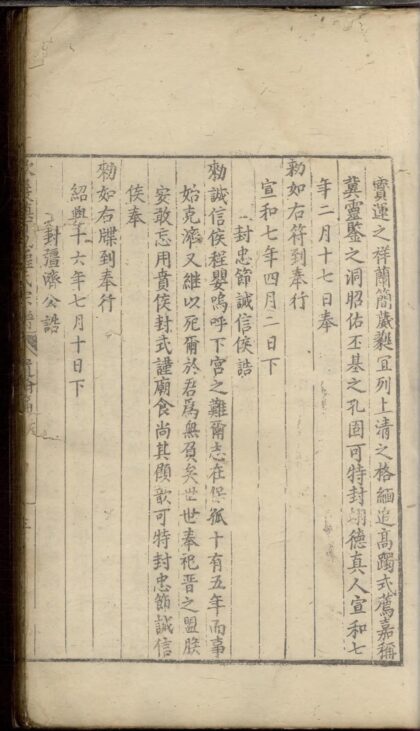 寶運之祥蘭簡蕆㒰冝列上清之格緬追髙躅式薦嘉稱
冀靈鑒之洞昭佑丕基之孔固可特封翊德真人宣和七
年二月十七日奉
勑如右符到奉行
宣和七年四月二日下
封忠節誠信侯誥
勑誠信侯程嬰嗚呼下宫之難爾志在保孤十有五年而事
始克濟又継以死爾於君爲無負矣世世奉祀晋之盟朕
安敢忘用賁侯封式謹廟食尚其顧歆可特封忠節誠信
侯奉
勑如右牒到奉行
紹興十六年七月十日下
封彊濟公誥